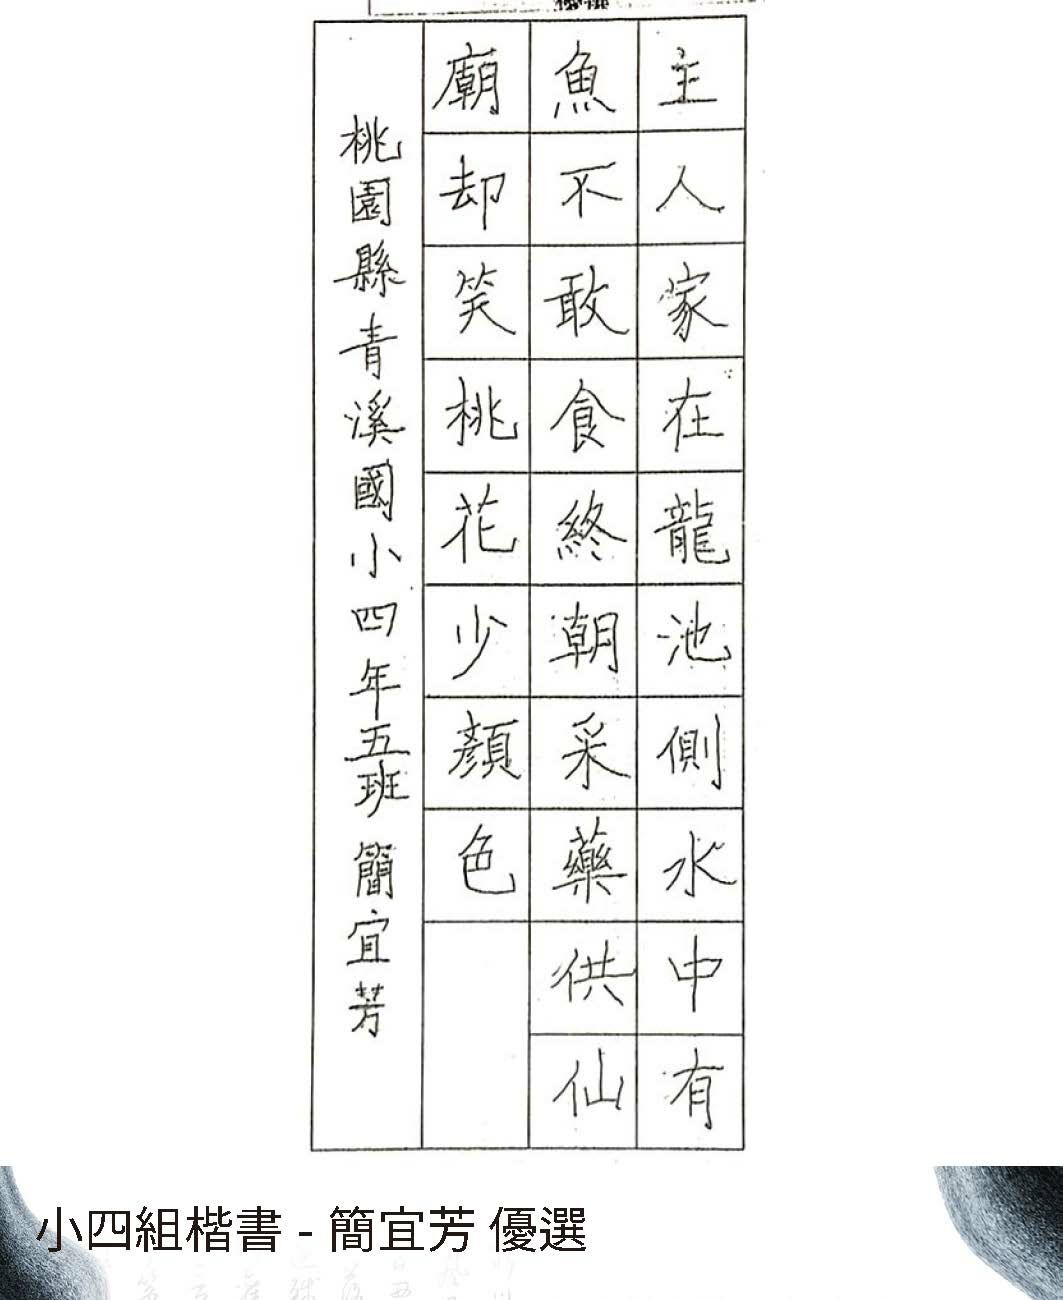 主人家在龍池側水中有
魚不敢食終朝采藥供仙
廟却笑桃花少顏色
桃園縣青溪國小四年五班簡宜芳
小四組楷書 - 簡宜芳 優選